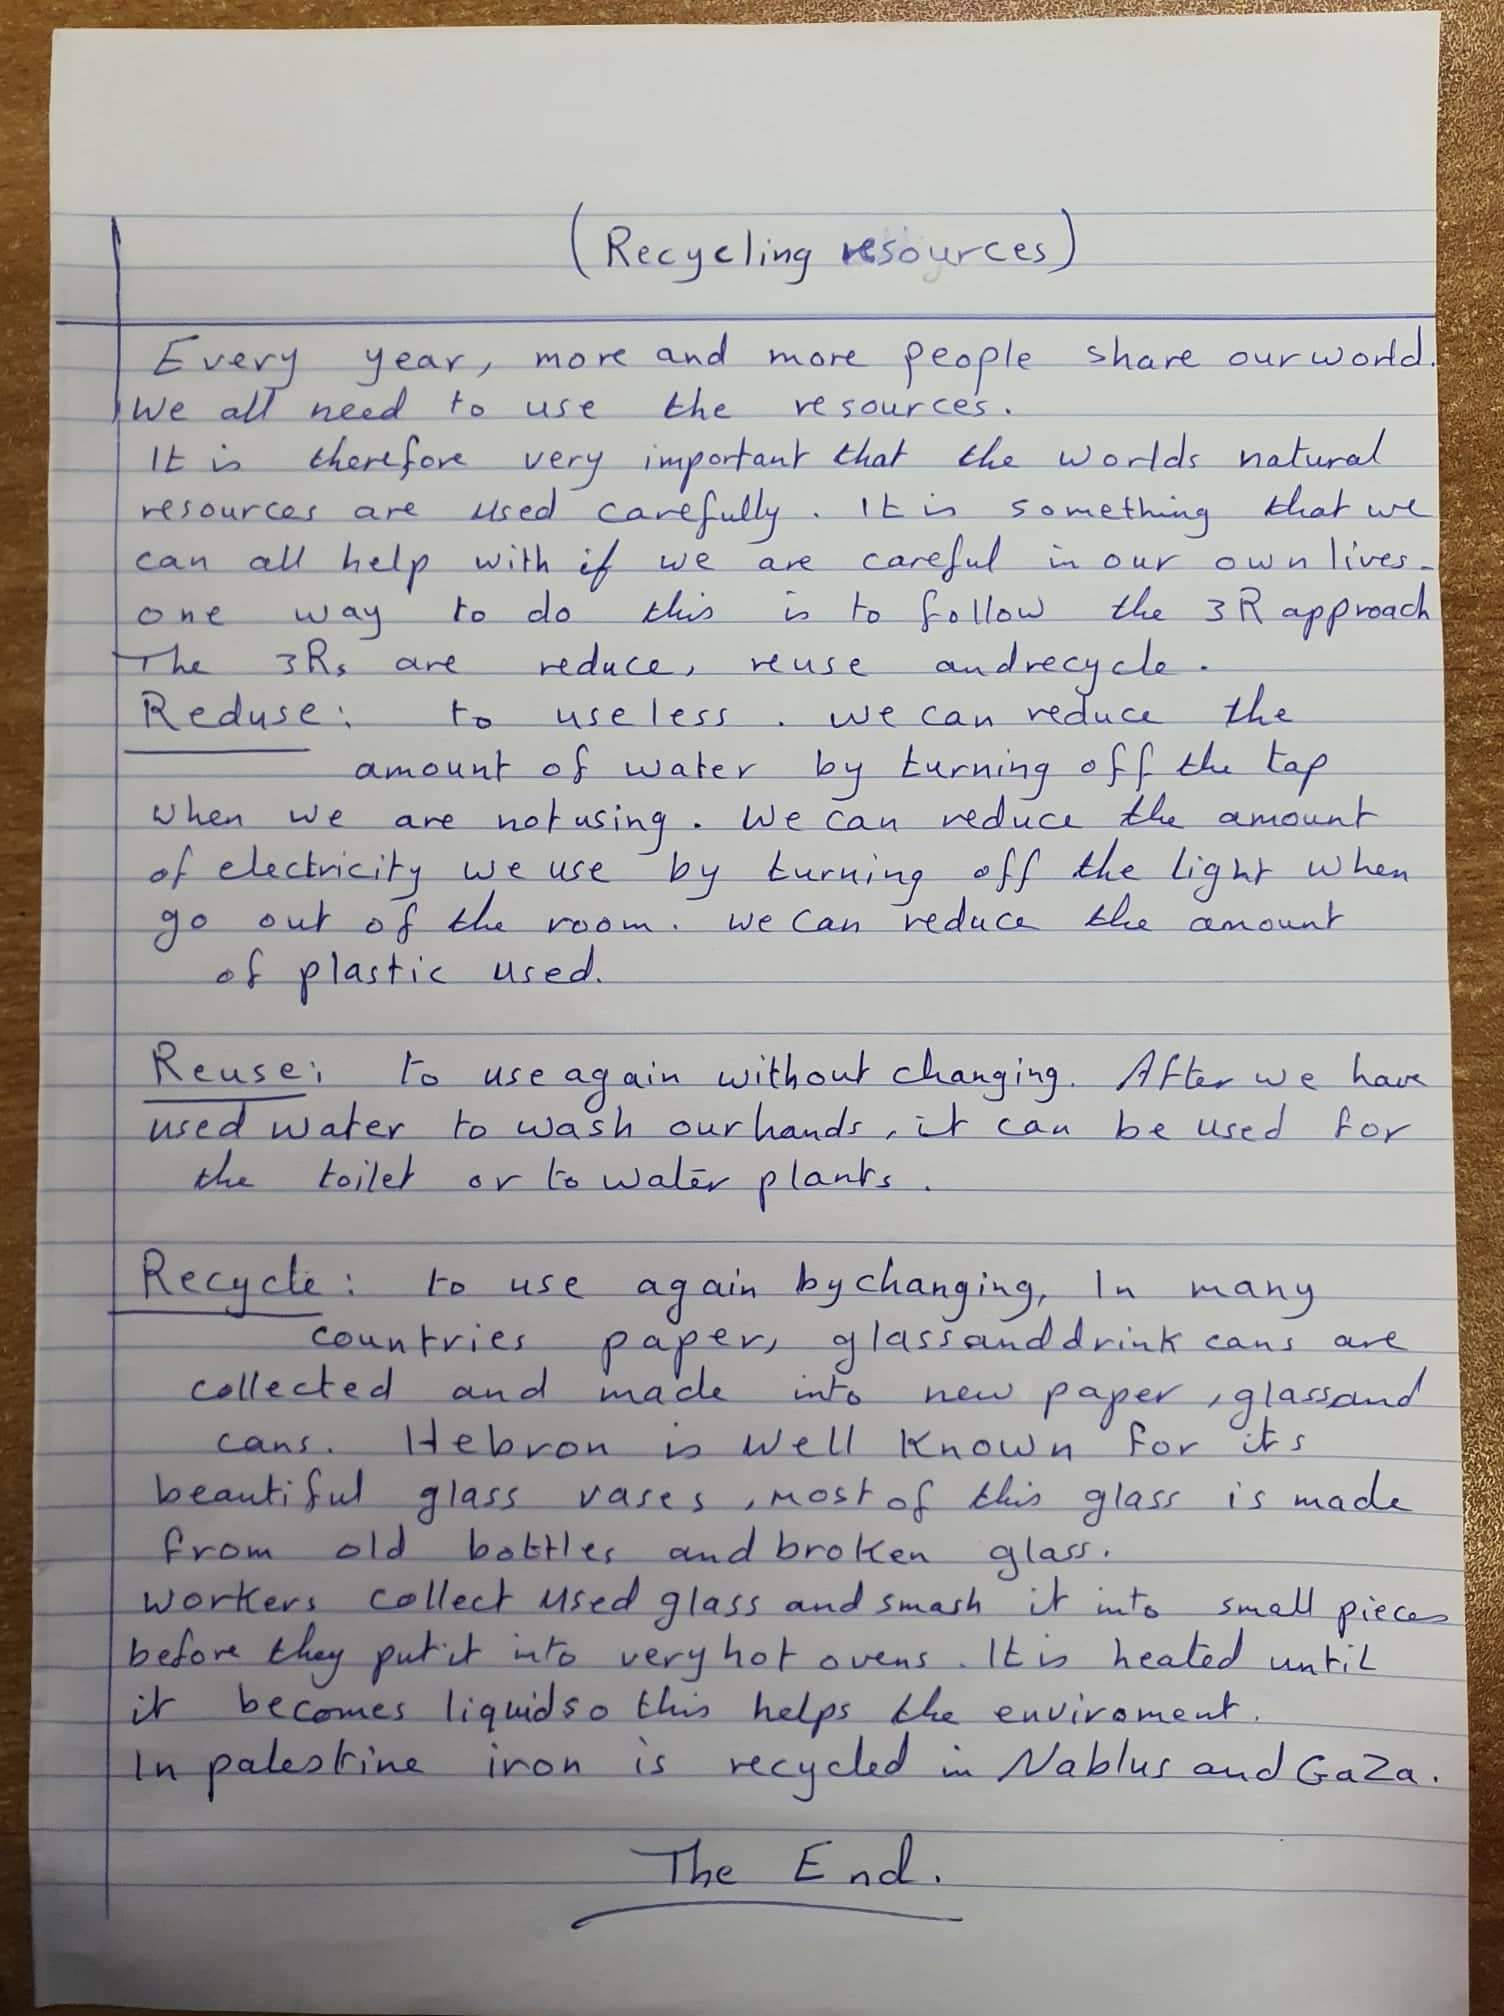 (Recycling resources)
Every year, more and more people share our world.
We all need to use the resources.
It is therefore very important that the worlds natural
resources are used carefully. It is something that we
can all help with if we are careful in our own lives.
one way to do this is to follow the 3R approach
The 3Rs are reduce, reuse and recycle.
Reduse: to use less. we can reduce the
amount of water by turning off the tap
when we are not using. We can reduce the amount
of electricity we use by turning off the light when
go out of the room. we can reduce the amount
of plastic used.
Reuse: to use again without changing. After we have
used water to wash our hands, it can be used for
the toilet or to water plants.
Recycle: to use again by changing, In many
countries paper, glass and drink cans are
collected and made into new paper, glass and
cans. Hebron is well known for its
beautiful glass vases, most of this glass is made
from old bottles and broken glass.
workers collect used glass and smash it into small pieces
before they put it into very hot ovens. It is heated until
it becomes liquid so this helps the enviroment.
In palestine iron is recycled in Nablus and GaZa.
The End.